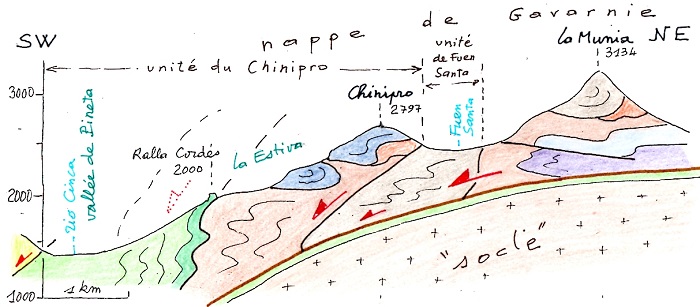 nappe de Gavarnie
SW
NE
unité du Chinipro
unité
de Fuen
Santa
la Munia
3134
Chinipro
2797
3000
2000
1000
Rio Cinca
vallée de Pineta
Ralla Cordés
2000
la Estiva
Fuen
Santa
"socle"
1 km